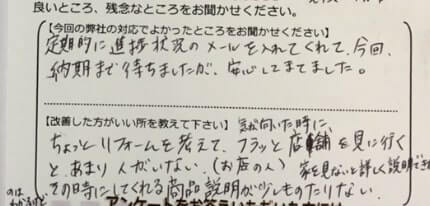 良いところ、残念なところをお聞かせください。
【今回の弊社の対応でよかったところをお聞かせください】
定期的に進捗状況のメールを入れてくれて、今回、
納期まで待ちましたが、安心してまてました。
【改善した方がいい所を教えて下さい】 気が向いた時に
ちょっとリフォームを考えて、フラッと店舗を見に行く
と、あまり人がいない。(お店の人) 家を見ないと詳しく説明でき
のは
その時にしてくれる商品説明が少しものたりない。
わかるけど
アンケートをお答えいただいた方には